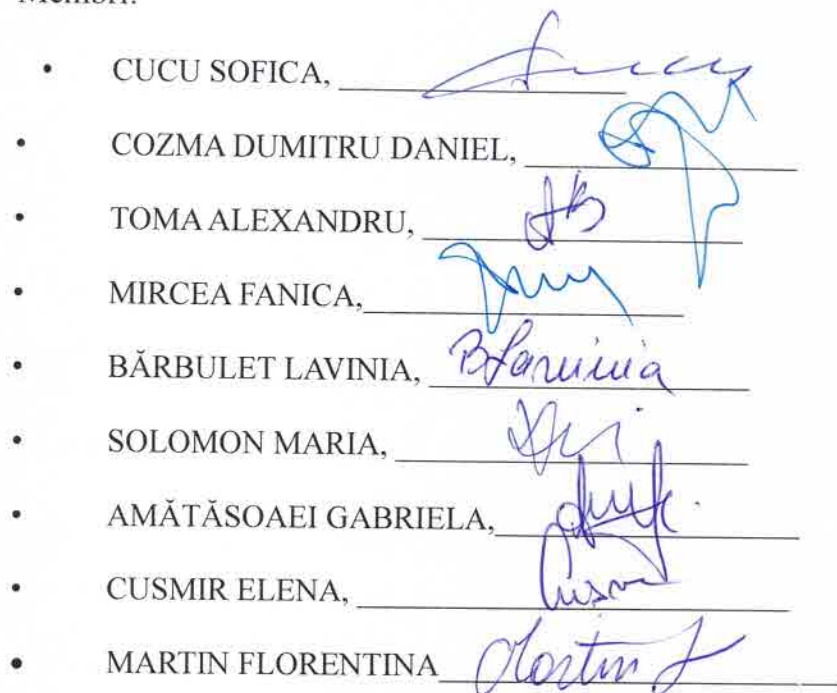 Membri:
• CUCU SOFICA, Cucu
• COZMA DUMITRU DANIEL,
• TOMA ALEXANDRU,
• MIRCEA FANICA,
• BĂRBULET LAVINIA, BLavinia
• SOLOMON MARIA,
• AMĂTĂSOAEI GABRIELA,
• CUSMIR ELENA,
• MARTIN FLORENTINA Martin F